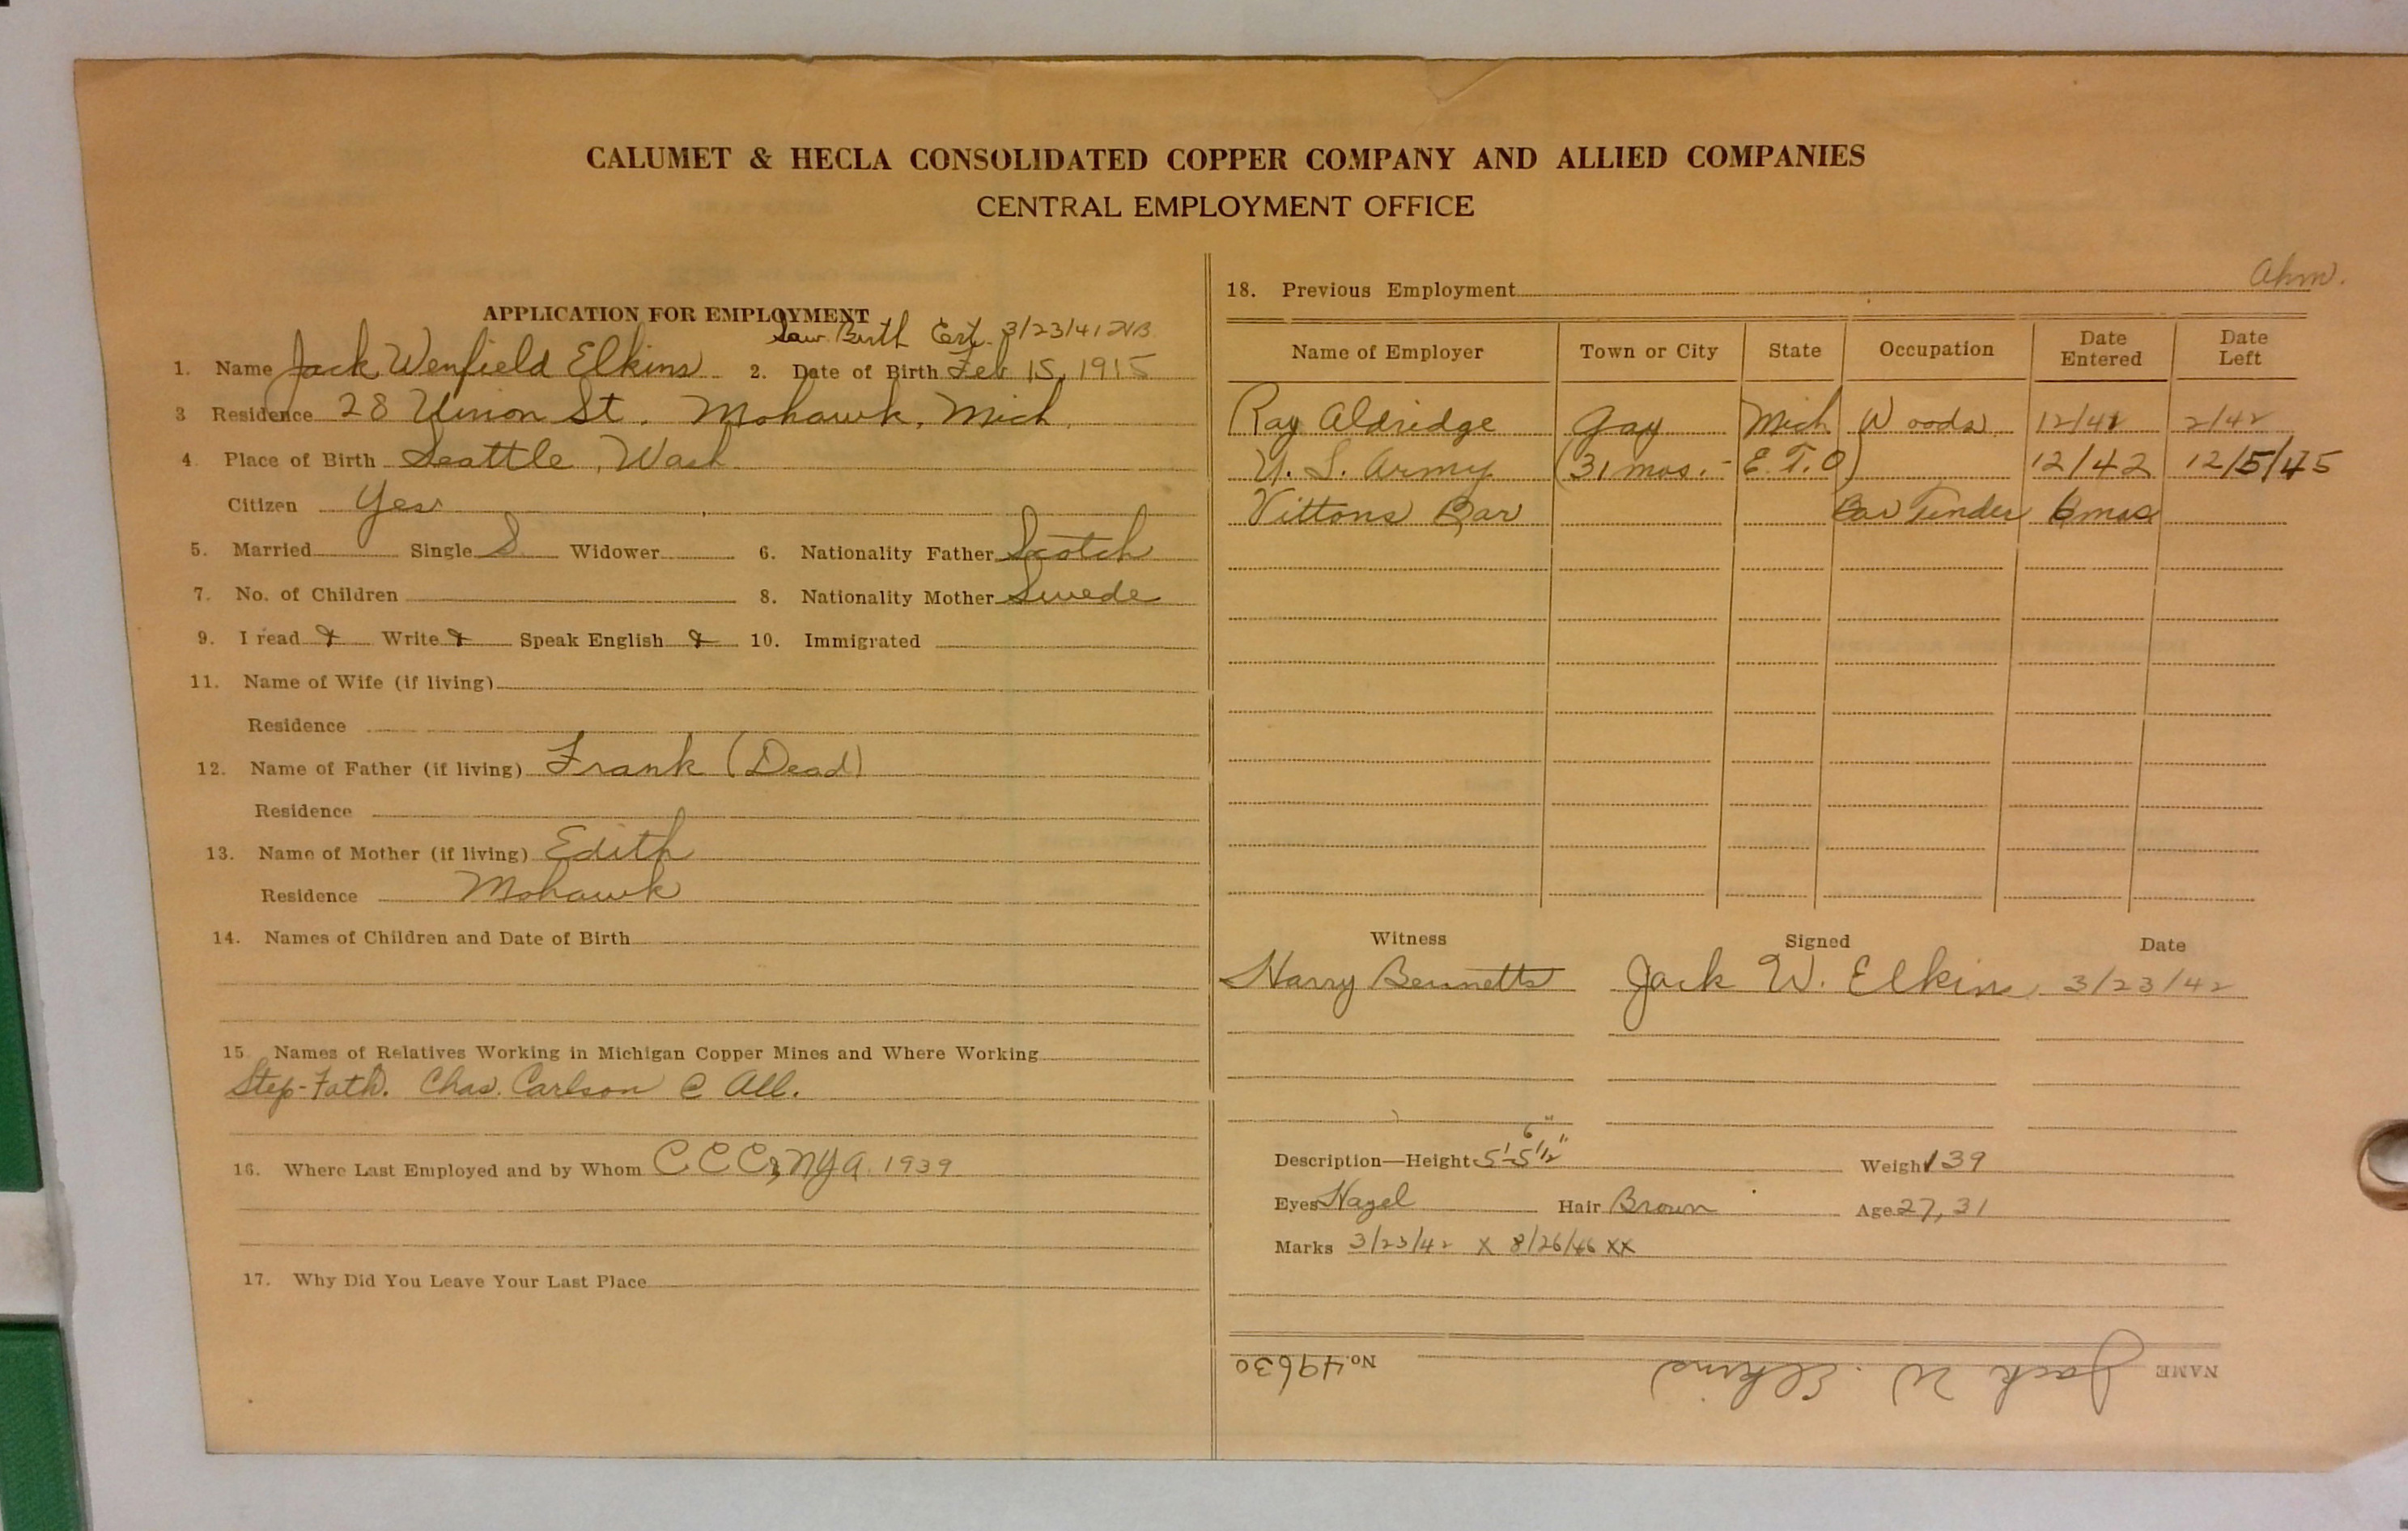 CALUMET & HECLA CONSOLIDATED COPPER COMPANY AND ALLIED COMPANIES
CENTRAL EMPLOYMENT OFFICE
APPLICATION FOR EMPLOYMENT
Saw Birth Cert. 3/23/41 HB
1. Name Jack Wenfield Elkins 2. Date of Birth Feb 15, 1915
3 Residence 28 Union St. Mohawk, Mich.
4. Place of Birth Seattle, Wash.
Citizen Yes
5. Married Single S Widower 6. Nationality Father Scotch
7. No. of Children 8. Nationality Mother Swede
9. I read Write Speak English 10. Immigrated
11. Name of Wife (if living)
Residence
12. Name of Father (if living) Frank (Dead)
Residence
13. Name of Mother (if living) Edith
Residence Mohawk
14. Names of Children and Date of Birth
15 Names of Relatives Working in Michigan Copper Mines and Where Working
Step-Fath. Chas. Carlson @ All.
16. Where Last Employed and by Whom C C C & N Y A. 1939
17. Why Did You Leave Your Last Place
Ahm.
18. Previous Employment
Name of Employer Town or City State Occupation Date Entered Date Left
Ray Aldridge Gay Mich Woods 12/41 2/42
U. S. Army (31 mos. - E. T. O) 12/42 12/5/45
Vittons Bar Bar Tender 6 mos
Witness Signed Date
Harry Bennetts Jack W. Elkins 3/23/42
6"
Description—Height 5'-5 1/2" Weight 139
Eyes Hazel Hair Brown Age 27, 31
Marks 3/23/42 X 8/26/46 XX
NAME Jack W. Elkins No. 49630